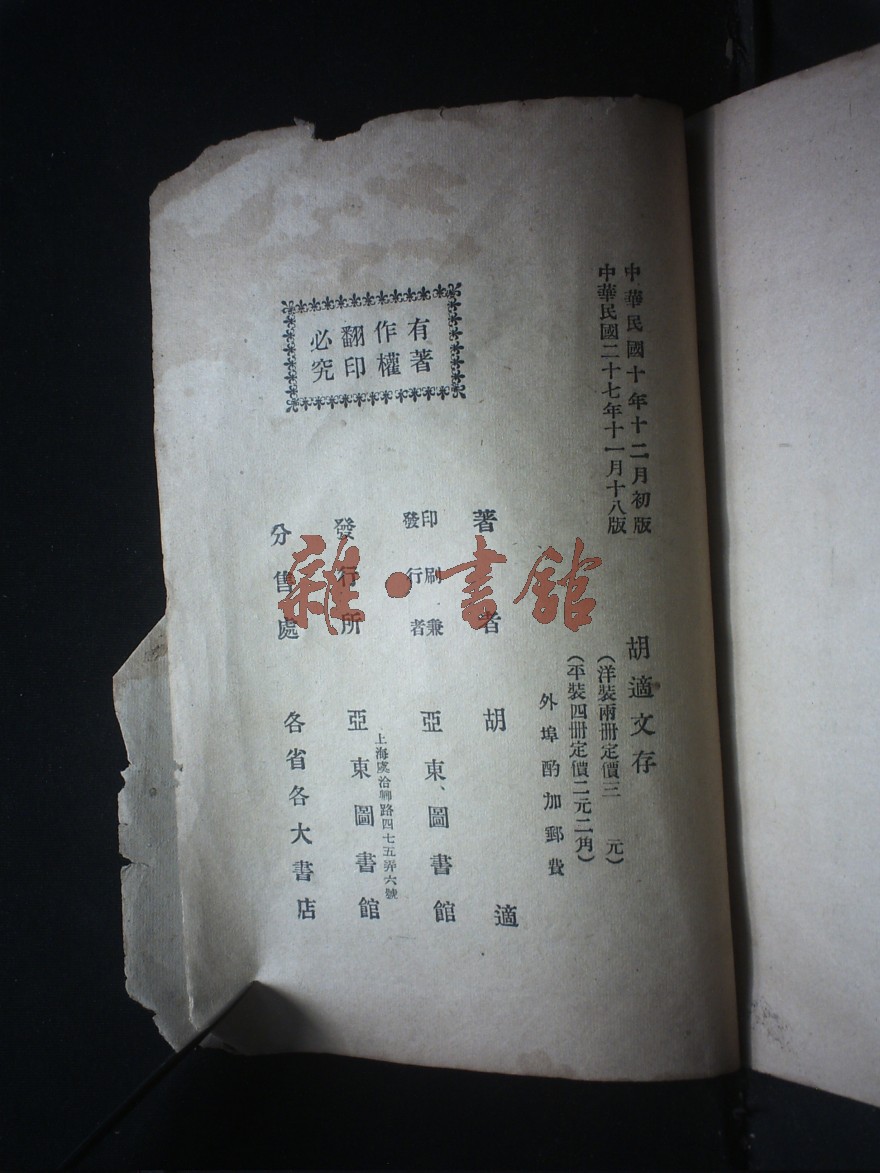 中華民國十年十二月初版
中華民國二十七年十一月十八版
胡適文存
（洋裝兩冊定價三元）
（平裝四冊定價二元二角）
外埠酌加郵費
著者 胡適
印刷兼發行者 亞東圖書館
發行所 亞東圖書館
上海虞洽卿路四七五弄六號
分售處 各省各大書店
有著
作權
翻印
必究
雜·書館